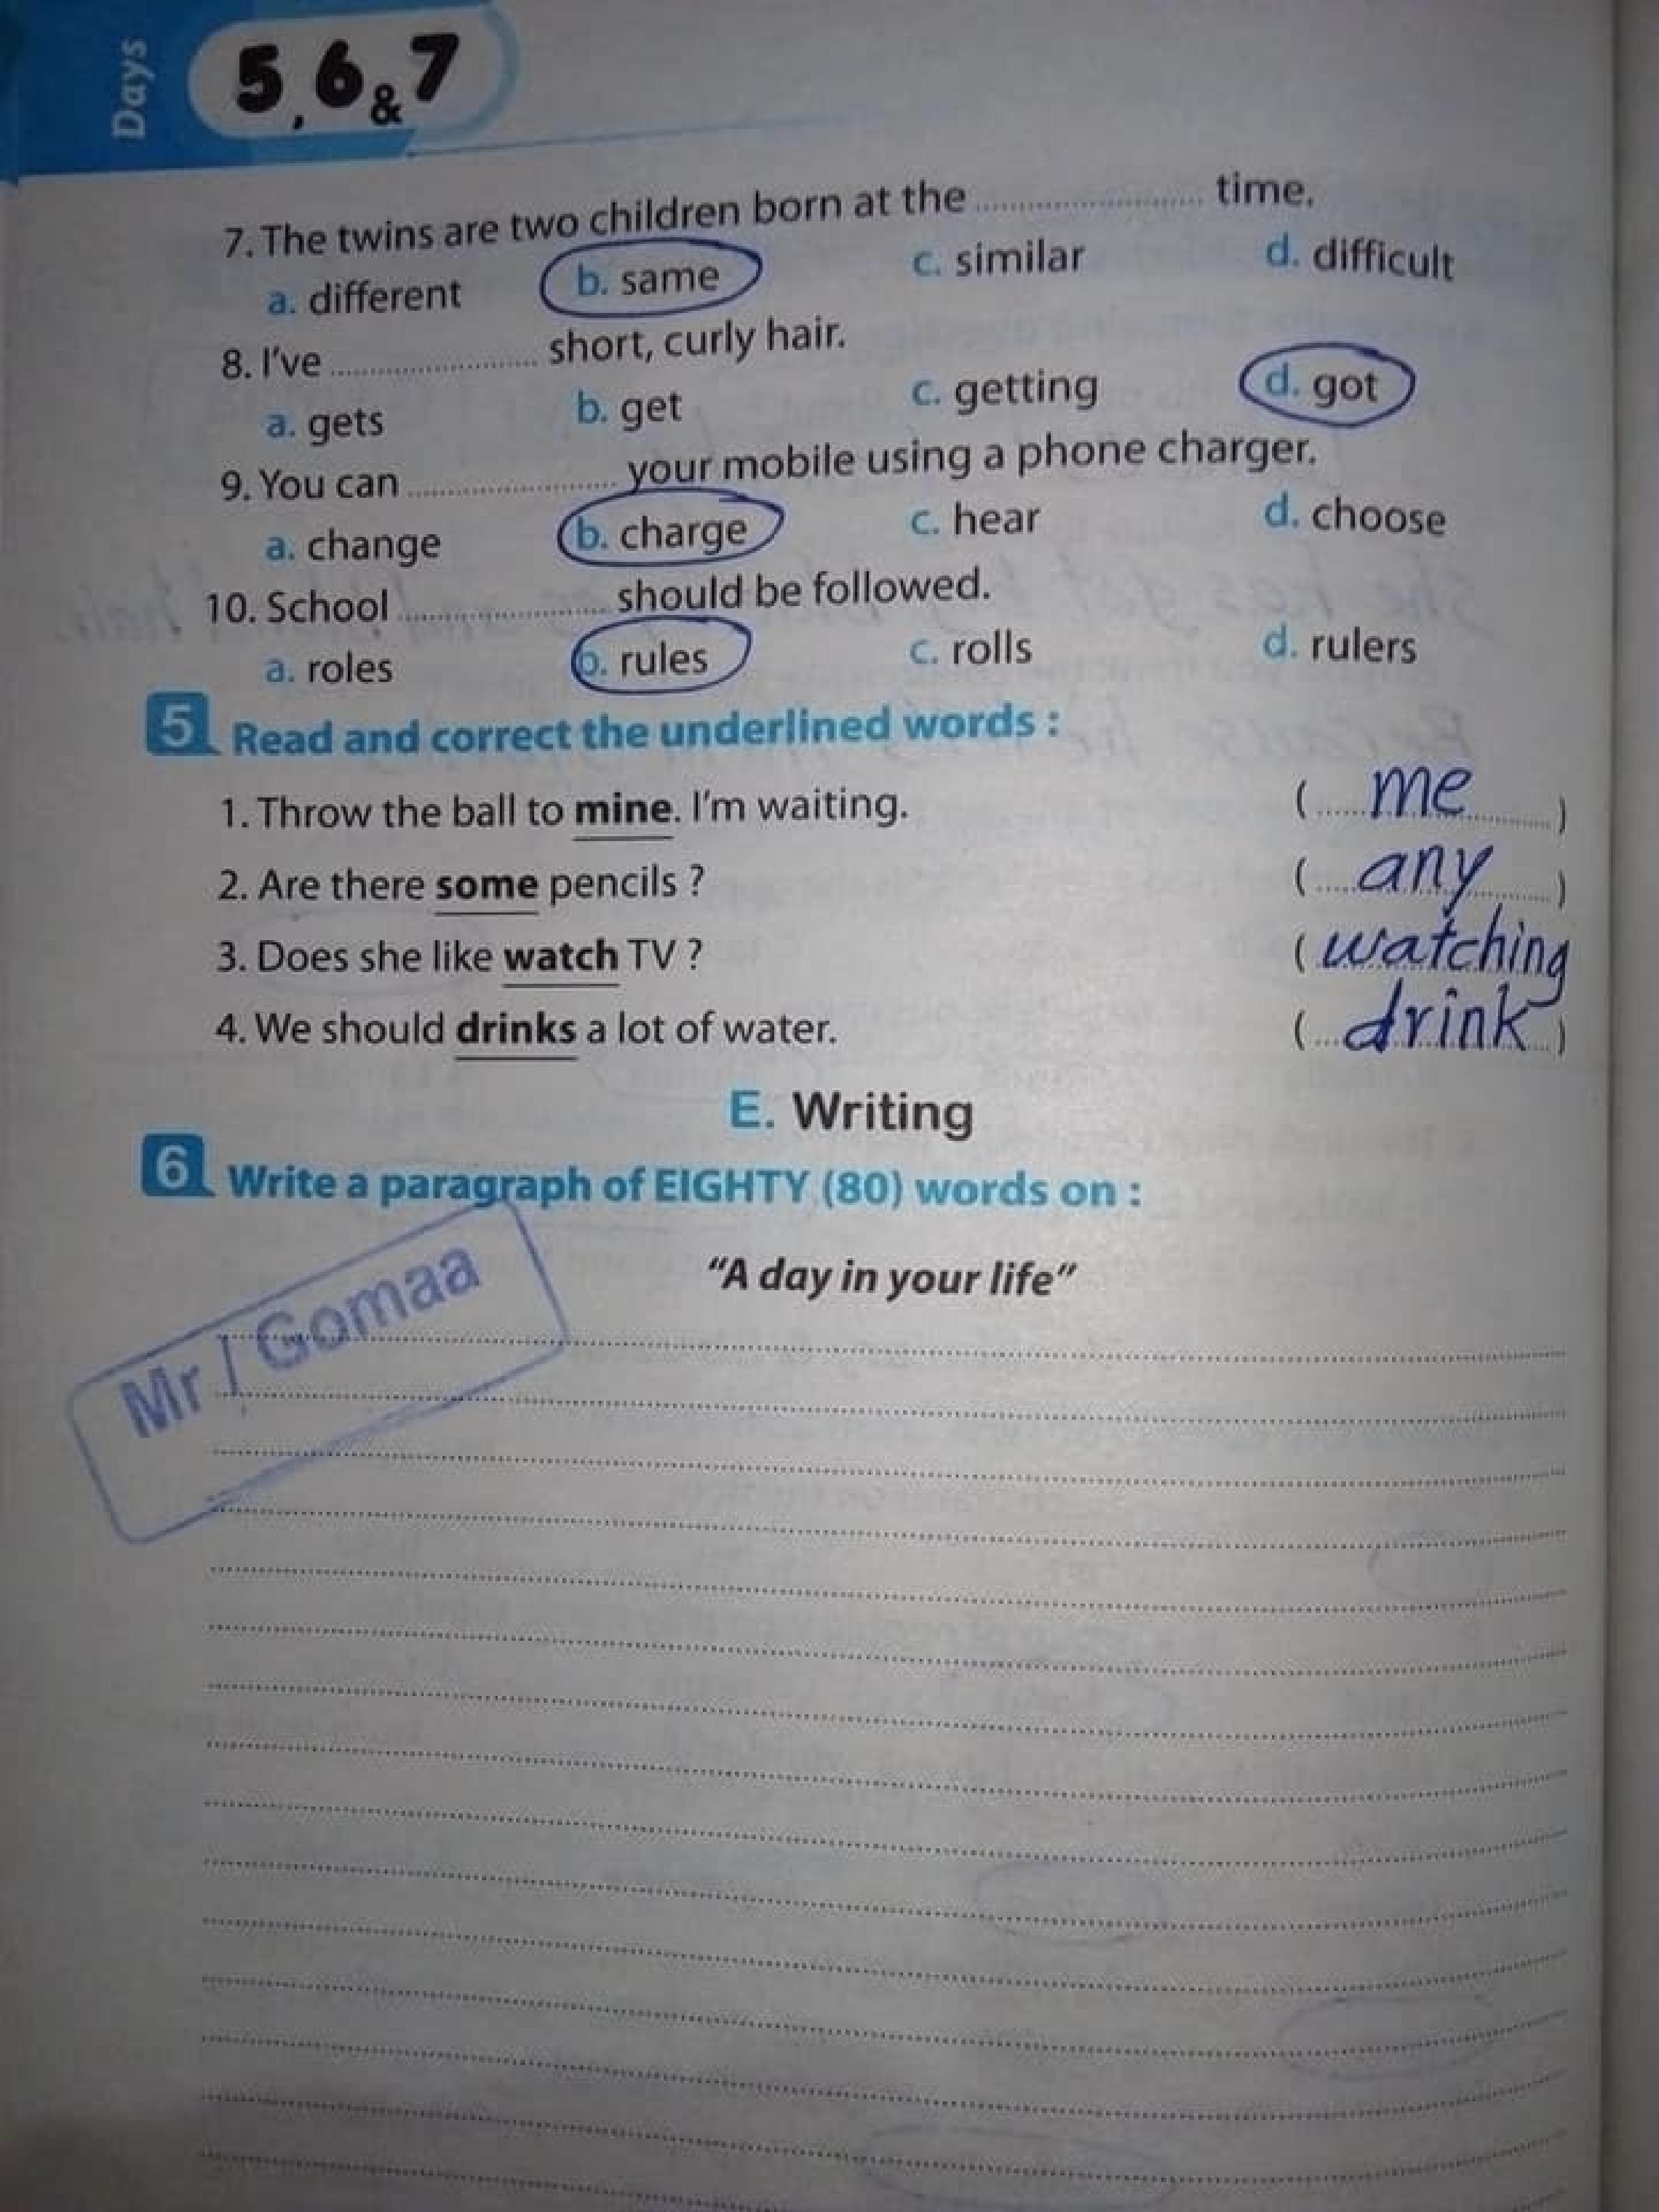 Days 5, 6 & 7
7. The twins are two children born at the ........................ time.
a. different b. same c. similar d. difficult
8. I've ........................ short, curly hair.
a. gets b. get c. getting d. got
9. You can ........................ your mobile using a phone charger.
a. change b. charge c. hear d. choose
10. School ........................ should be followed.
a. roles b. rules c. rolls d. rulers
5 Read and correct the underlined words :
1. Throw the ball to mine. I'm waiting. (.....me.....)
2. Are there some pencils ? (.....any.....)
3. Does she like watch TV ? (watching
4. We should drinks a lot of water. (...drink...)
E. Writing
6 Write a paragraph of EIGHTY (80) words on :
"A day in your life"
Mr / Gomaa